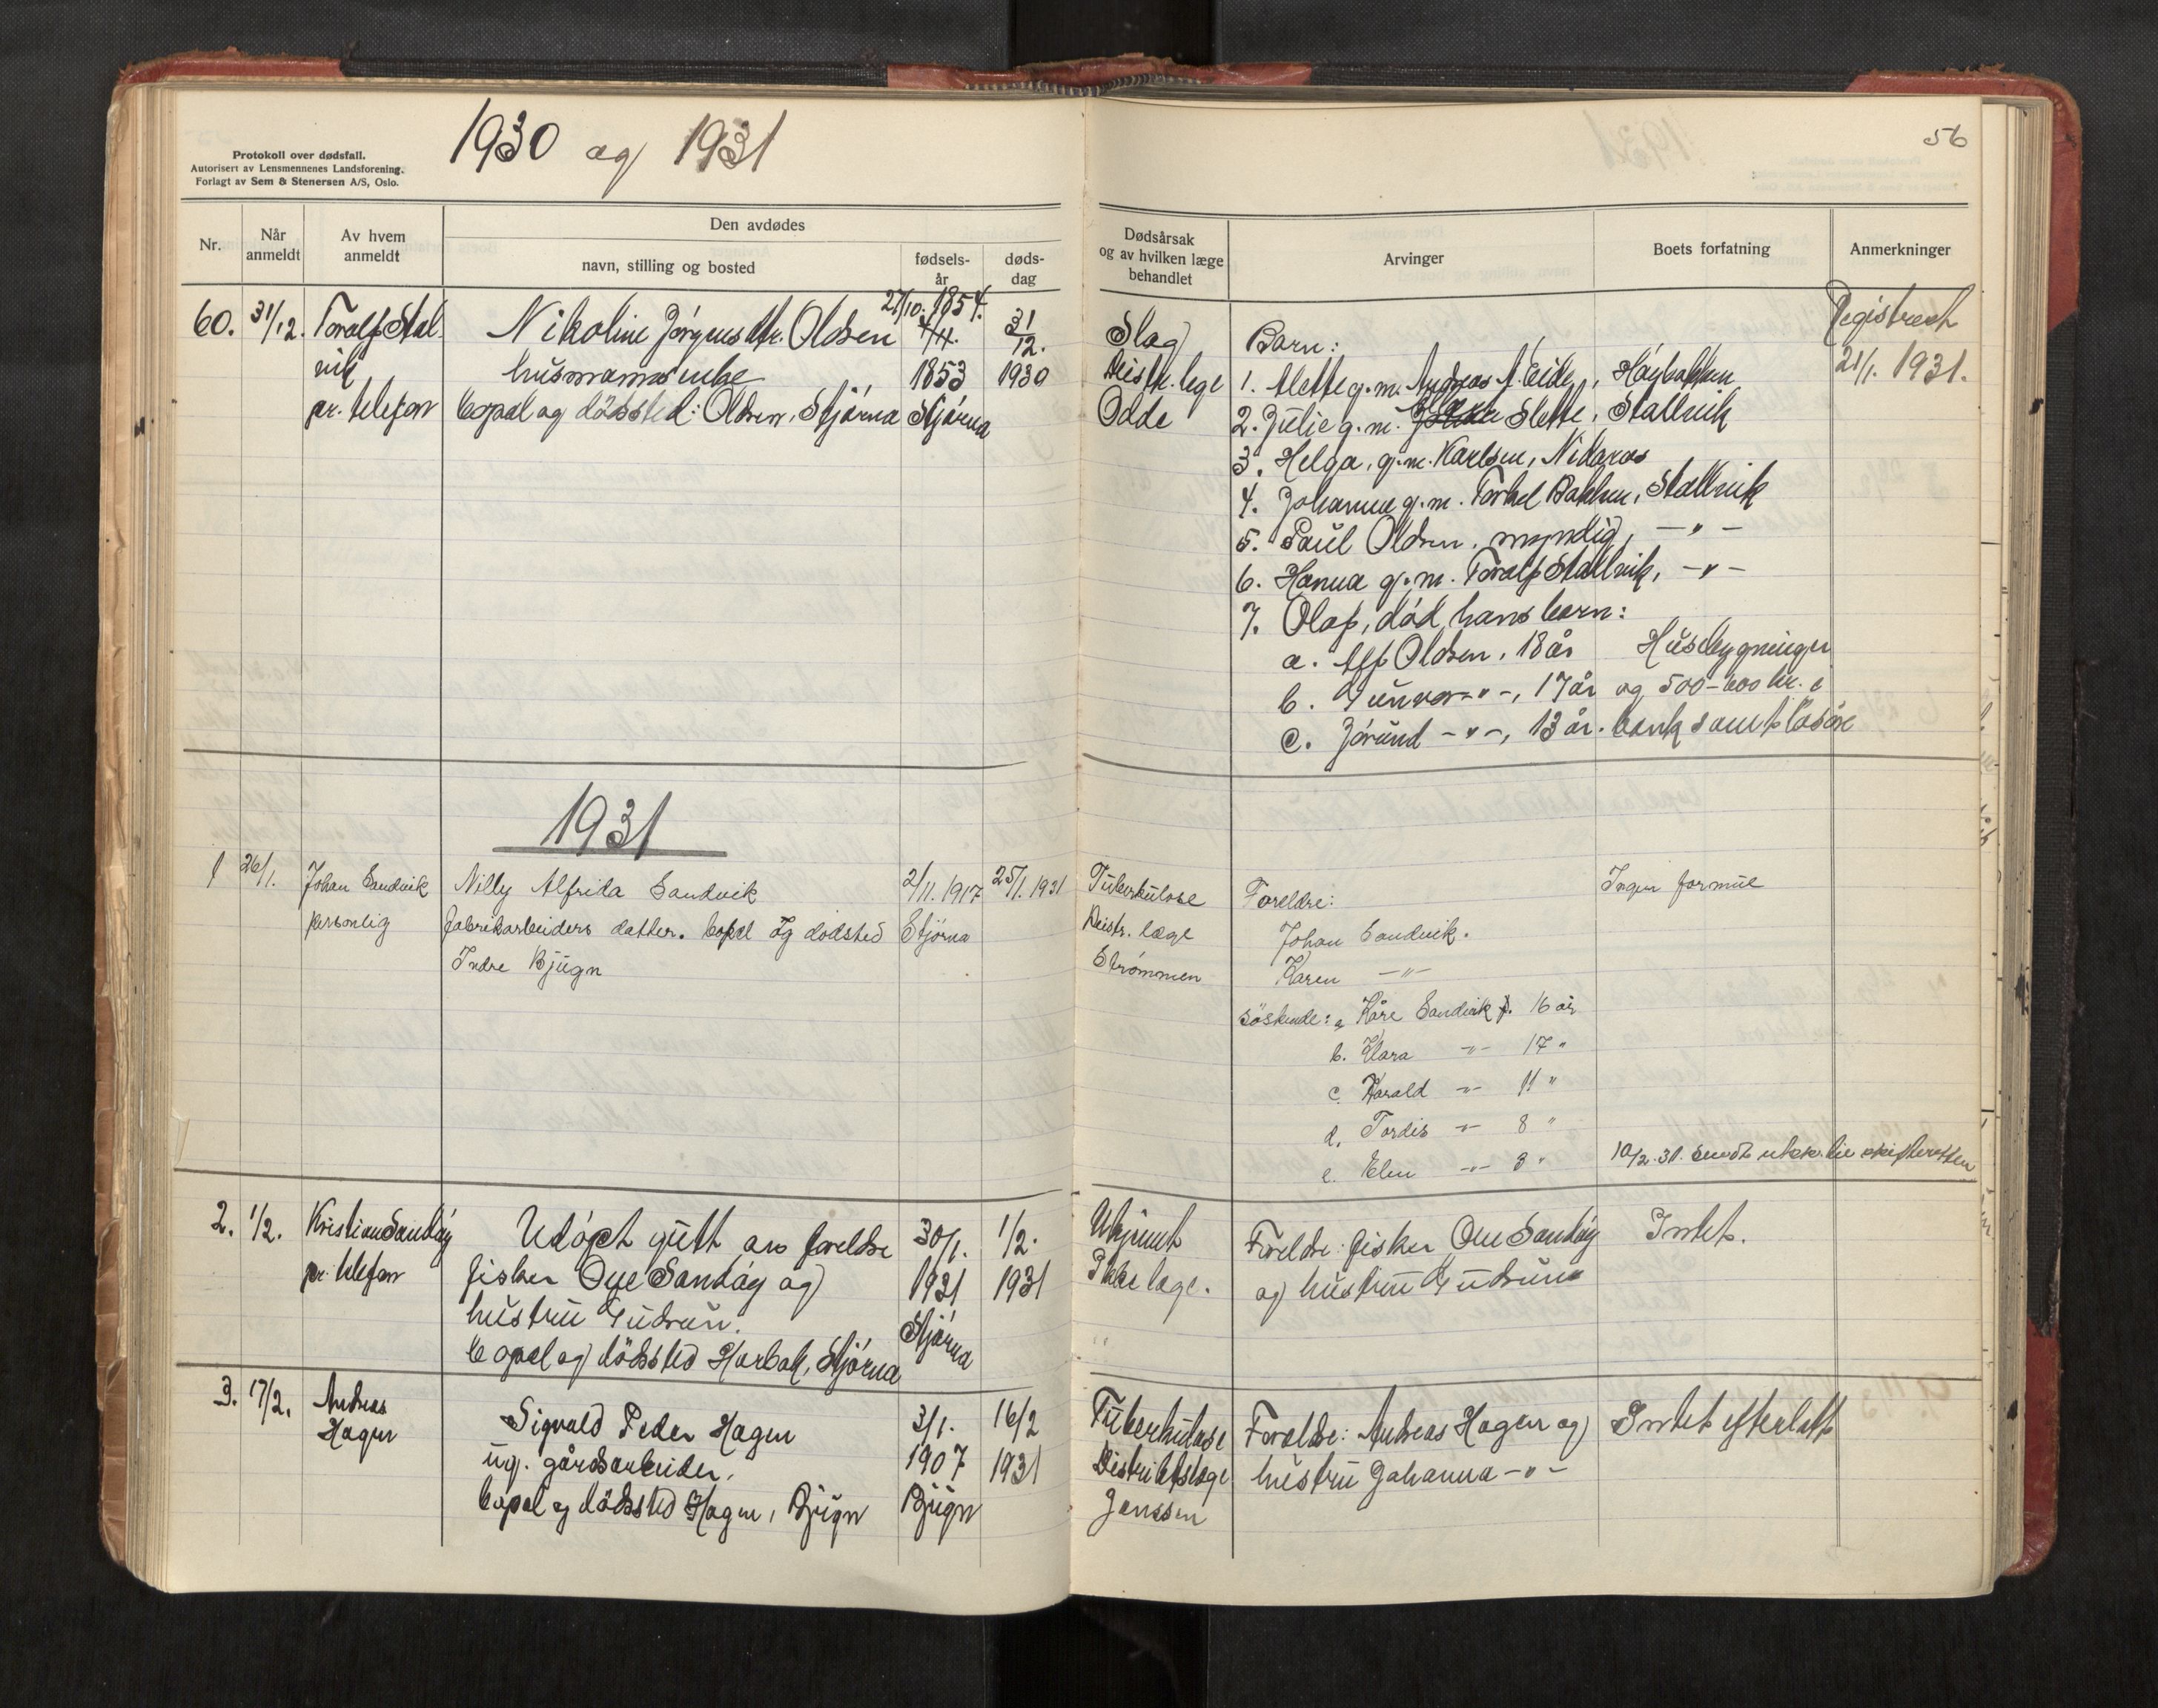 Protokoll over dødsfall.
Autorisert av Lensmennenes Landsforening.
Forlagt av Sem & Stenersen A/S, Oslo.
1930 og 1931
Nr.
Når
anmeldt
Av hvem
anmeldt
Den avdødes
navn, stilling og bosted
fødsels-
år
døds-
dag
60.
31/12.
Toralf Stal-
vik
pr. telefon
Nikoline Jørgensdtr. Oldsen
husmannsenke
Bopel og dödssted: Oldsen, Stjørna
27/10. 1854.
4/4.
1853
Stjørna
31
12.
1930
1931
1
26/1.
Johan Sandvik
personlig
Nilly Alfrida Sandvik
fabrikarbeiders datter. bopel og dödsted
Indre Bjugn
2/11. 1917
Stjørna
25/1. 1931
2.
1/2.
Kristian Sandøy
pr. telefon
Udøpt gutt av foreldre
fisker Ove Sandøy og
hustru Gudrun.
Bopel og dödssted Harbak, Stjørna
30/1.
1931
Stjørna
1/2.
1931
3.
17/2.
Andreas
Hagen
Sigvald Peder Hagen
ug. gårdsarbeider,
bopel og dödssted Hagen, Bjugn
3/1.
1907
Bjugn
16/2
1931
56
Dødsårsak
og av hvilken læge
behandlet
Arvinger
Boets forfatning
Anmerkninger
Slag
Distr. lege
Odde
Barn:
1. Alette g.m. Andreas A. Eide, Høybakken
2. Julie g.m. Slette, Stallvik
3. Helga, g.m. Karlsen, Nidaros
4. Johanna g.m. Torkel Bakken, Stallvik
5. Paul Oldsen, myndig, -"-
6. Hanna g.m. Toralf Stallvik, -"-
7. Olaf, död, hans barn:
a. Alf Oldsen, 18 år
b. Gunvor -"-, 17 år
c. Jørund -"-, 13 år.
Husbygninger
og 500-600 kr. i
bank samt løsøre
Registrert
21/1. 1931.
Tuberkulose
Distr. læge
Strømmen
Foreldre:
Johan Sandvik.
Karen -"-
söskende: a Kåre Sandvik 16 år
b. Klara -"- 17 "
c. Harald -"- 11 "
d. Tordis -"- 8 "
e. Elen -"- 3 "
Ingen formue
10/2. 31. sendt utskr. til skifteretten
Ukjent
Ikke læge.
Foreldre: fisker Ove Sandøy
og hustru Gudrun
Intet.
Tuberkulose
Distriktslæge
Janssen
Foreldre: Andreas Hagen og
hustru Johanna -"-
Intet efterlatt